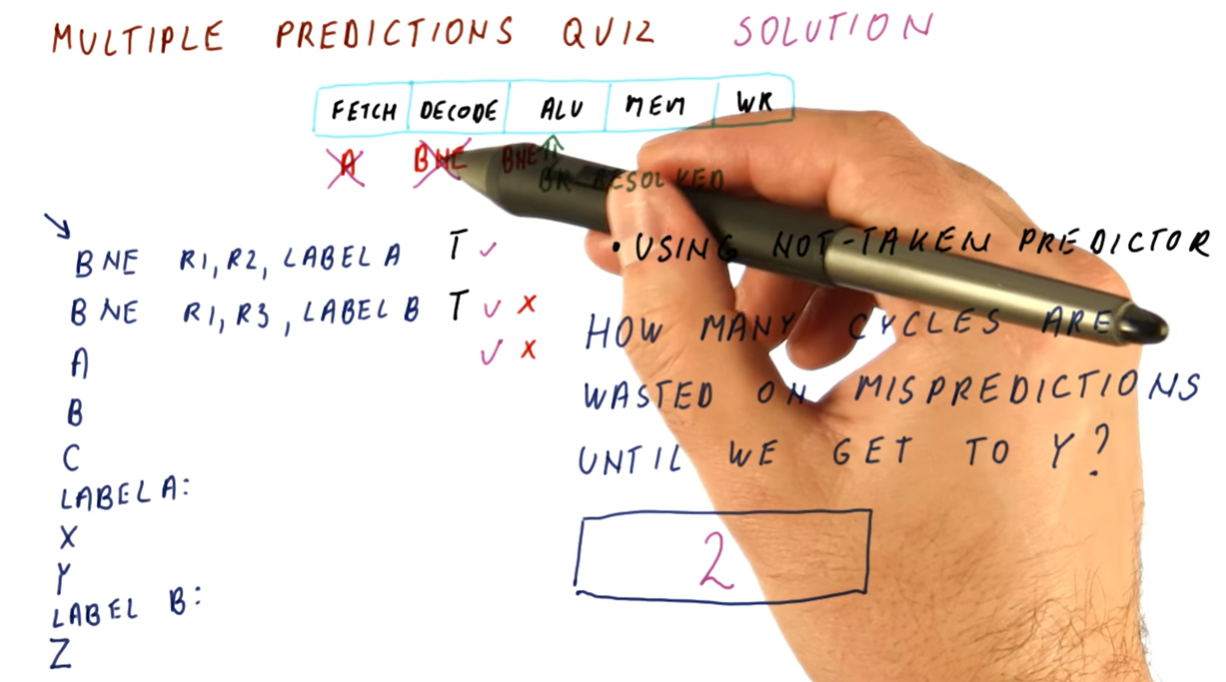 MULTIPLE PREDICTIONS QUIZ SOLUTION
FETCH DECODE ALU MEM WR
A BNE BNE
BR RESOLVED
BNE R1, R2, LABEL A T
BNE R1, R3, LABEL B T
A
B
C
LABEL A:
X
Y
LABEL B:
Z
• USING NOT-TAKEN PREDICTOR
HOW MANY CYCLES ARE
WASTED ON MISPREDICTIONS
UNTIL WE GET TO Y?
2